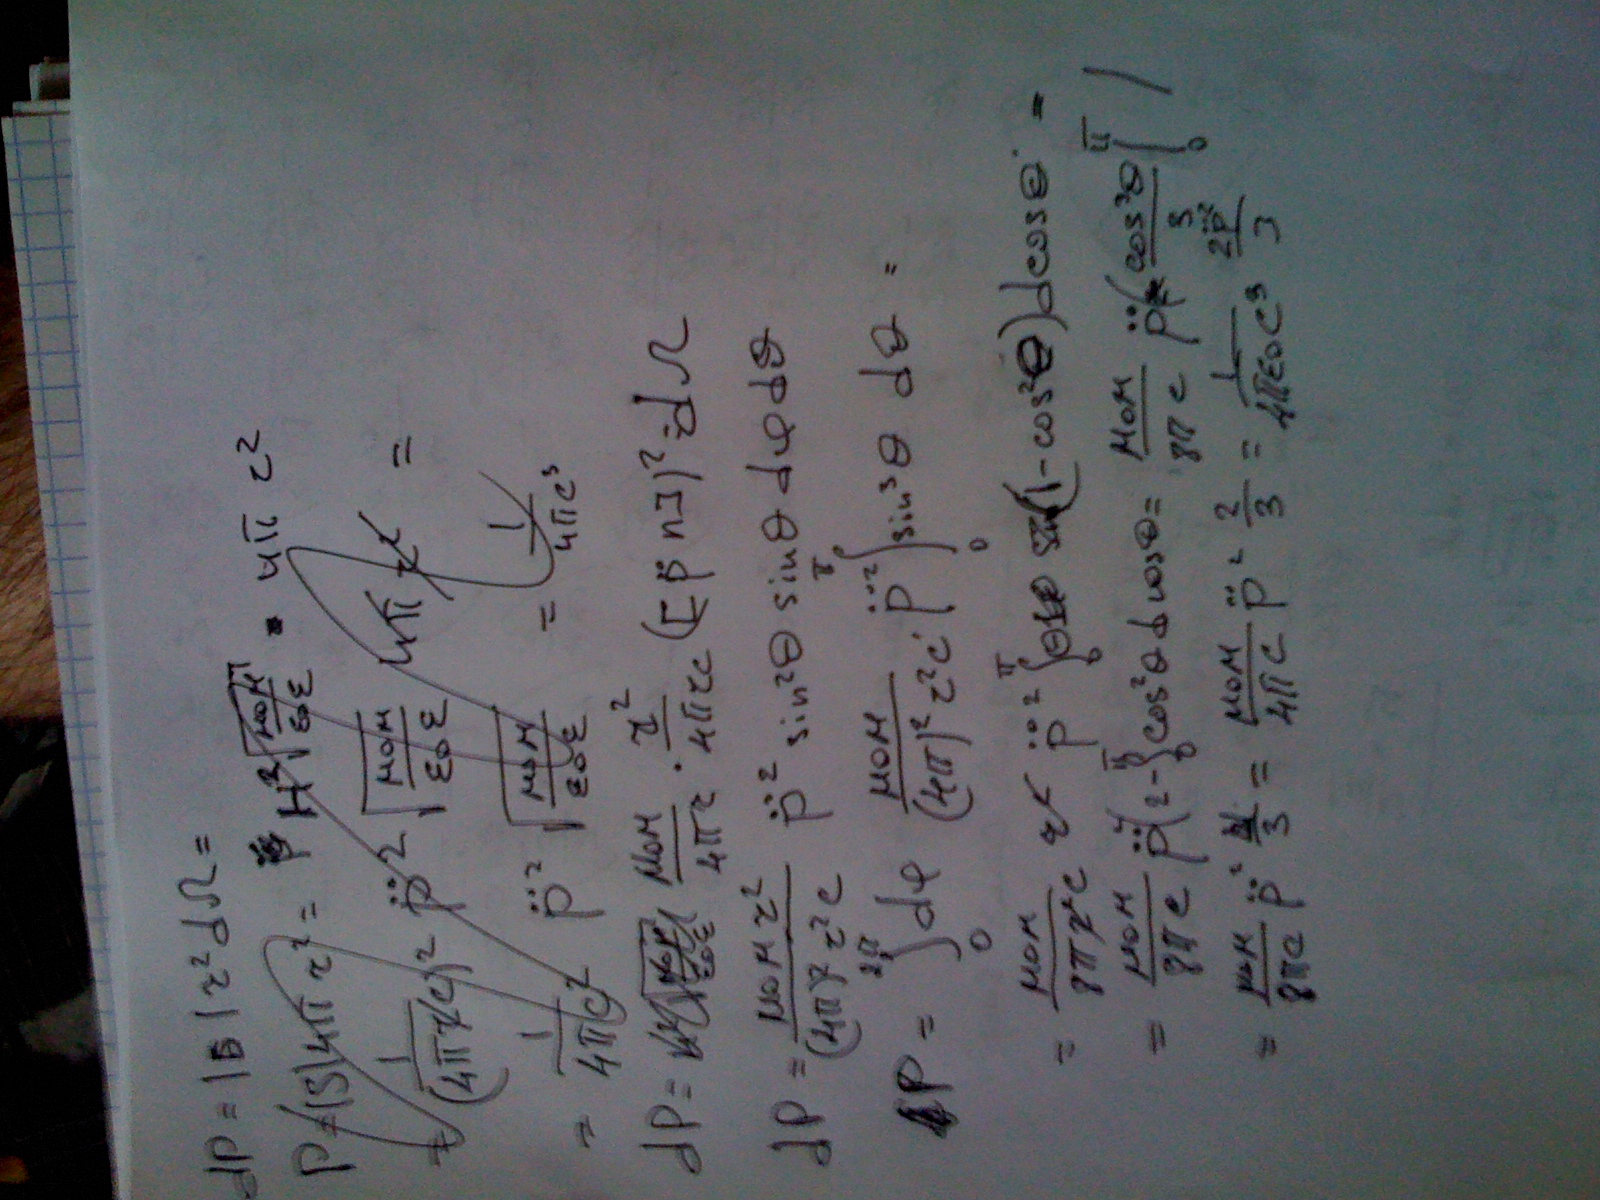 dP = |S| r² dΩ =
P = |S| 4π r² = H² √(μ₀μ/ε₀ε) · 4π r²
1/(4πrc)² p̈² √(μ₀μ/ε₀ε) 4π r² =
= 1/4πc² p̈² √(μ₀μ/ε₀ε) = 1/4πc³
dP = μ₀μ/4πr · r²/4πrc ([p̈ n])² dΩ
dP = μ₀μ r²/(4π)² r² c p̈² sin²θ sinθ dφ dθ
P = ∫₀^2π dφ μ₀μ/(4π)² r² c p̈² ∫₀^π sin³θ dθ =
= μ₀μ/8πr²c r² p̈² ∫₀^π (1 - cos²θ) d cosθ =
= μ₀μ/8πc p̈² (2 - ∫₀^π cos²θ d cosθ = μ₀μ/8πc p̈² (cos³θ/3 |₀^π )
= μ₀μ/8πc p̈² 4/3 = μ₀μ/4πc p̈² 2/3 = 1/4πε₀c³ 2p̈²/3